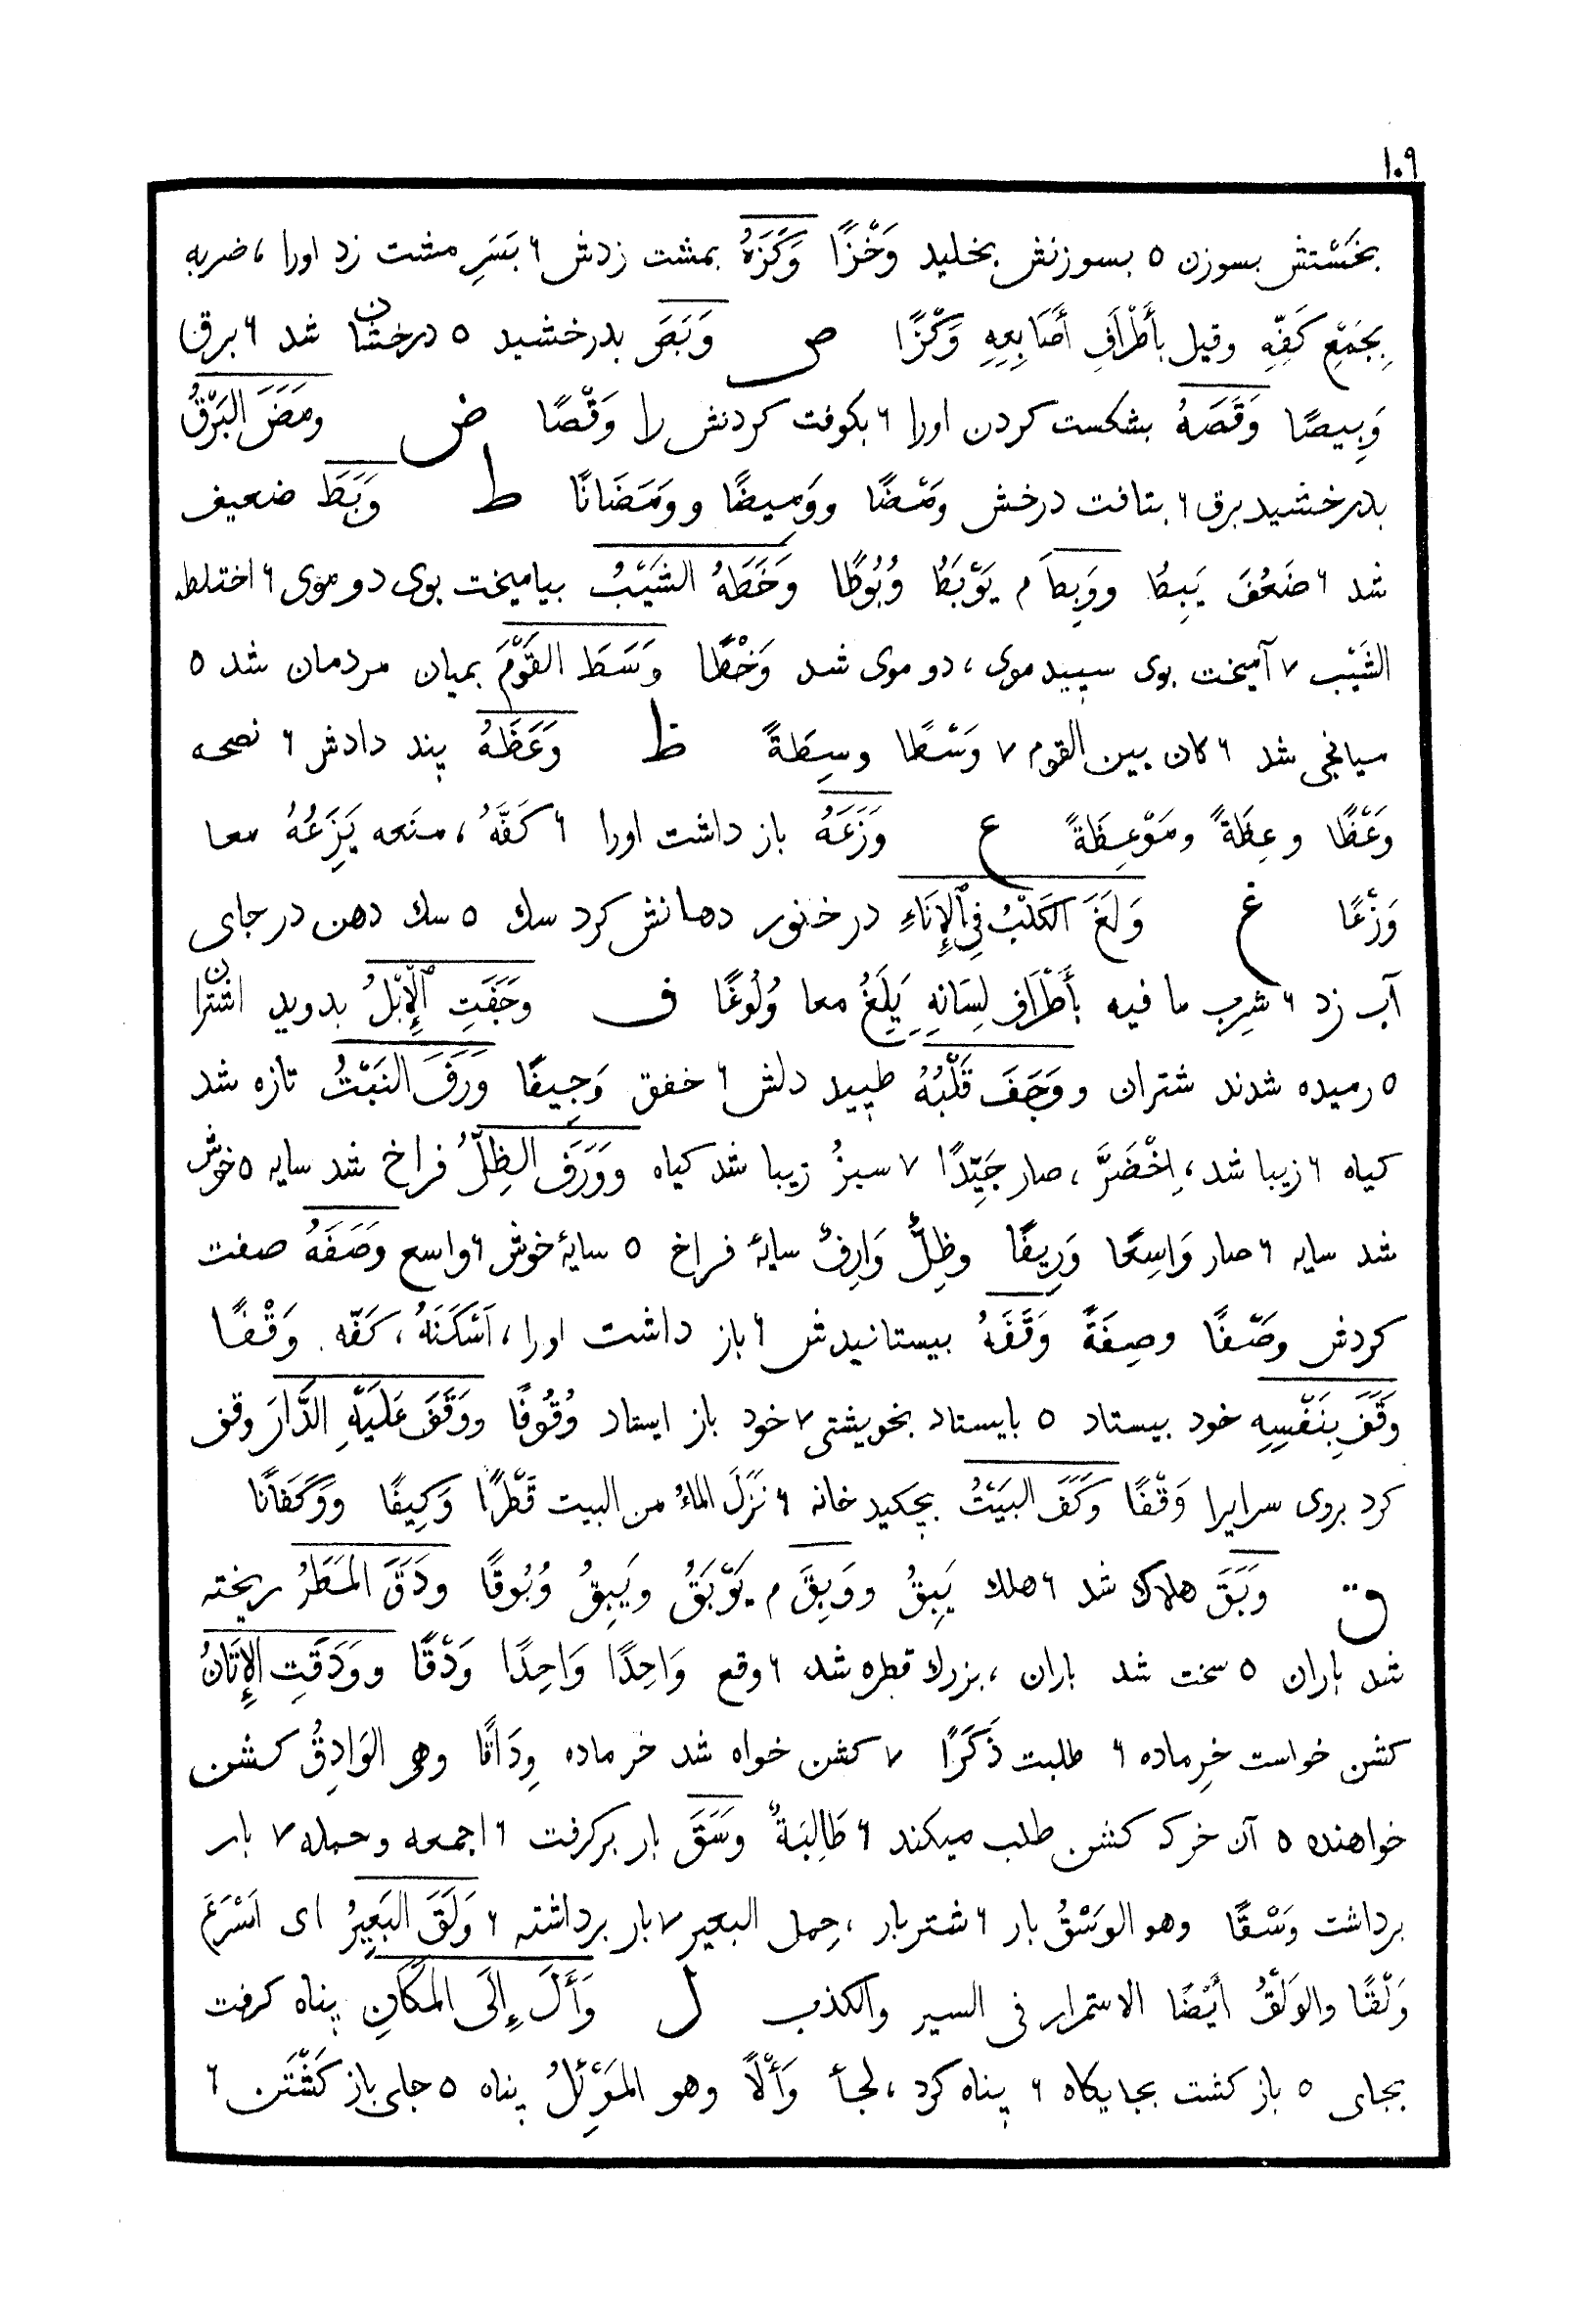 ١٠٩
بخَسْتش بسوزن ٥ بسوزنش بخليد وَخْزًا وَكَزَهُ بمشت زدش ٦ بَسَرِ مشت زد اورا ، ضربه
بِجَمْعِ كَفِّهِ وقيل بأَطْرَافِ أَصَابِعِهِ وَكْزًا ص وَبَصَ بدرخشيد ٥ درخشان شد ٦ برق
وَبِيصًا وَقَصَهُ بشكست كردن اورا ٦ بكوفت كردنش را وَقْصًا ض ومَضَ البَرْقُ
بدرخشيد برق ٦ بتافت درخش ومْضًا ووَمِيضًا وومَضَانًا ط وَبَطَ ضعيف
شد ٦ ضَعُفَ يَبِطُ ووَبِطَ م يَوْبَطُ وُبُوطًا وَخَطَهُ الشَيْبُ بياميخت بوى دو موى ٦ اختلط
الشَيْب ٧ آميخت بوى سپيد موى ، دو موى شد وَخْطًا وَسَطَ القَوْمَ بميان مردمان شد ٥
ميانجى شد ٦ كان بين القوم ٧ وَسْطًا وسِطَةً ظ وَعَظَهُ پند دادش ٦ نصحه
وَعْظًا وعِظَةً ومَوْعِظَةً ع وَزَعَهُ باز داشت اورا ٦ كَفَّهُ ، منَعه يَزِعُهُ معا
وَزْعًا غ وَلَغَ الكَلْبُ فِي الإِنَاءِ در خنور دهانش كرد سك ٥ سك دهن در جاى
آب زد ٦ شرِب ما فيه بأَطْرَافِ لِسَانِهِ يَلِغُ معا وُلُوغًا ف وجَفَتِ الإِبْلُ بدويد اشترا ن
٥ رميده شدند شتران ووَجَفَ قَلْبُهُ طپيد دلش ٦ خفق وَجِيفًا وَرَفَ النَبْتُ تازه شد
كياه ٦ زيبا شد ، اِخْضَرَّ ، صار جَيِّدًا ٧ سبزُ زيبا شد كياه ووَرَفَ الظِلُّ فراخ شد سايه ٥ خوش
شد سايه ٦ صار وَاسِعًا وَرِيفًا وظِلٌّ وَارِفٌ سايۀ فراخ ٥ سايۀ خوش ٦ واسع وصَفَهُ صفت
كردش وصْفًا وصِفَةً وَقَفَهُ بيستانيدش ٦ باز داشت اورا ، اَسْكَنَهُ ، كَفّه . وَقْفًا
وقَفَ بِنَفْسِهِ خود بيستاد ٥ بايستاد بخويشتى ٧ خود باز ايستاد وُقُوفًا ووَقَفَ عَلَيْهِ الدَّارَ وقف
كرد بروى سرايرا وَقْفًا وكَفَ البَيْتُ بچكيد خانه ٦ نَزَلَ الماءُ من البيت قَطْرًا وَكِيفًا ووَكَفَانًا
ق وبَقَ هلاك شد ٦ هلك يَبِقُ ووَبِقَ م يَوْبَقُ ويَبِقُ وُبُوقًا ودَقَ المَطَرُ ريخته
شد باران ٥ سخت شد باران ، بزرك قطره شد ٦ وقع وَاحِدًا وَاحِدًا وَدْقًا ووَدَقَتِ الإِتَانُ
كشن خواست خرِ ماده ٦ طلبت ذَكَرًا ٧ كشن خواه شد خر ماده وِدَاقًا وهى الوَادِقُ كشن
خواهنده ٥ آن خر كه كشن طلب ميكند ٦ طَالِبَةٌ وسَقَ بار بركرفت ٦ اجمعه وحمله ٧ بار
برداشت وَسْقًا وهو الوَسْقُ بار ٦ شتر بار ، حِمل البعير ٧ بار برداشته ٦ وَلَقَ البَعِيرُ اى اَسْرَعَ
وَلْقًا والوَلْقُ أَيْضًا الاستمرار فى السير والكذب ل وَأَلَ إِلَى المَكَانِ پناه كرفت
بجاى ٥ باز كشت بجايكاه ٦ پناه كرد ، لجأ وَأْلًا وهو المَوْئِلُ پناه ٥ جاى باز كَشْتَن ٦